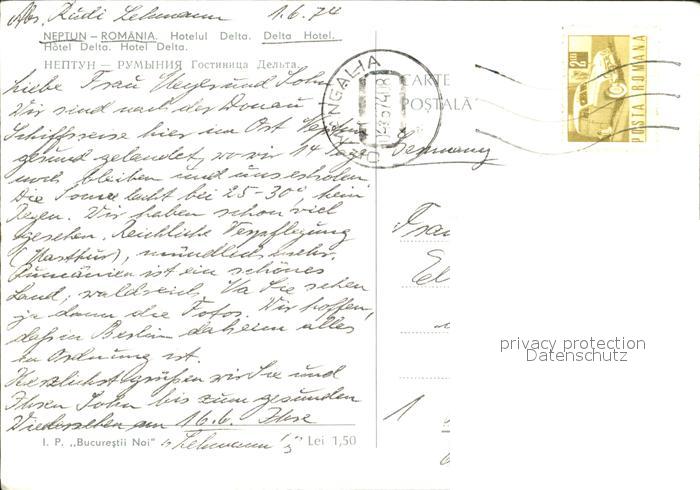 Abs. Rudi Lehmann 1.6.74
NEPTUN – ROMÂNIA. Hotelul Delta. Delta Hotel.
Hôtel Delta. Hotel Delta.
НЕПТУН — РУМЫНИЯ Гостиница Дельта.
Liebe Frau und Sohn
Wir sind nach der Donau
Schiffsreise hier im Ort Neptun
gesund gelandet, wo wir 14 Tage
noch bleiben und uns erholen.
Die Sonne lacht bei 25-30°, kein
Regen. Wir haben schon viel
gesehen. Reichliche Verpflegung
(Mastkur), mündlich mehr.
Rumänien ist ein schönes
Land, waldreich. Sie sehen
ja dann die Fotos. Wir hoffen,
daß in Berlin daheim alles
in Ordnung ist.
Herzlichst grüßen wir Sie und
Ihren Sohn bis zum gesunden
Wiedersehen am 16.6. Ihre
Lehmann's
I. P. „Bucureştii Noi"
Lei 1,50
MANGALIA
CARTE
POŞTALĂ
2 LEI
POSTA ROMANA
Germany
Frau
1
privacy protection
Datenschutz